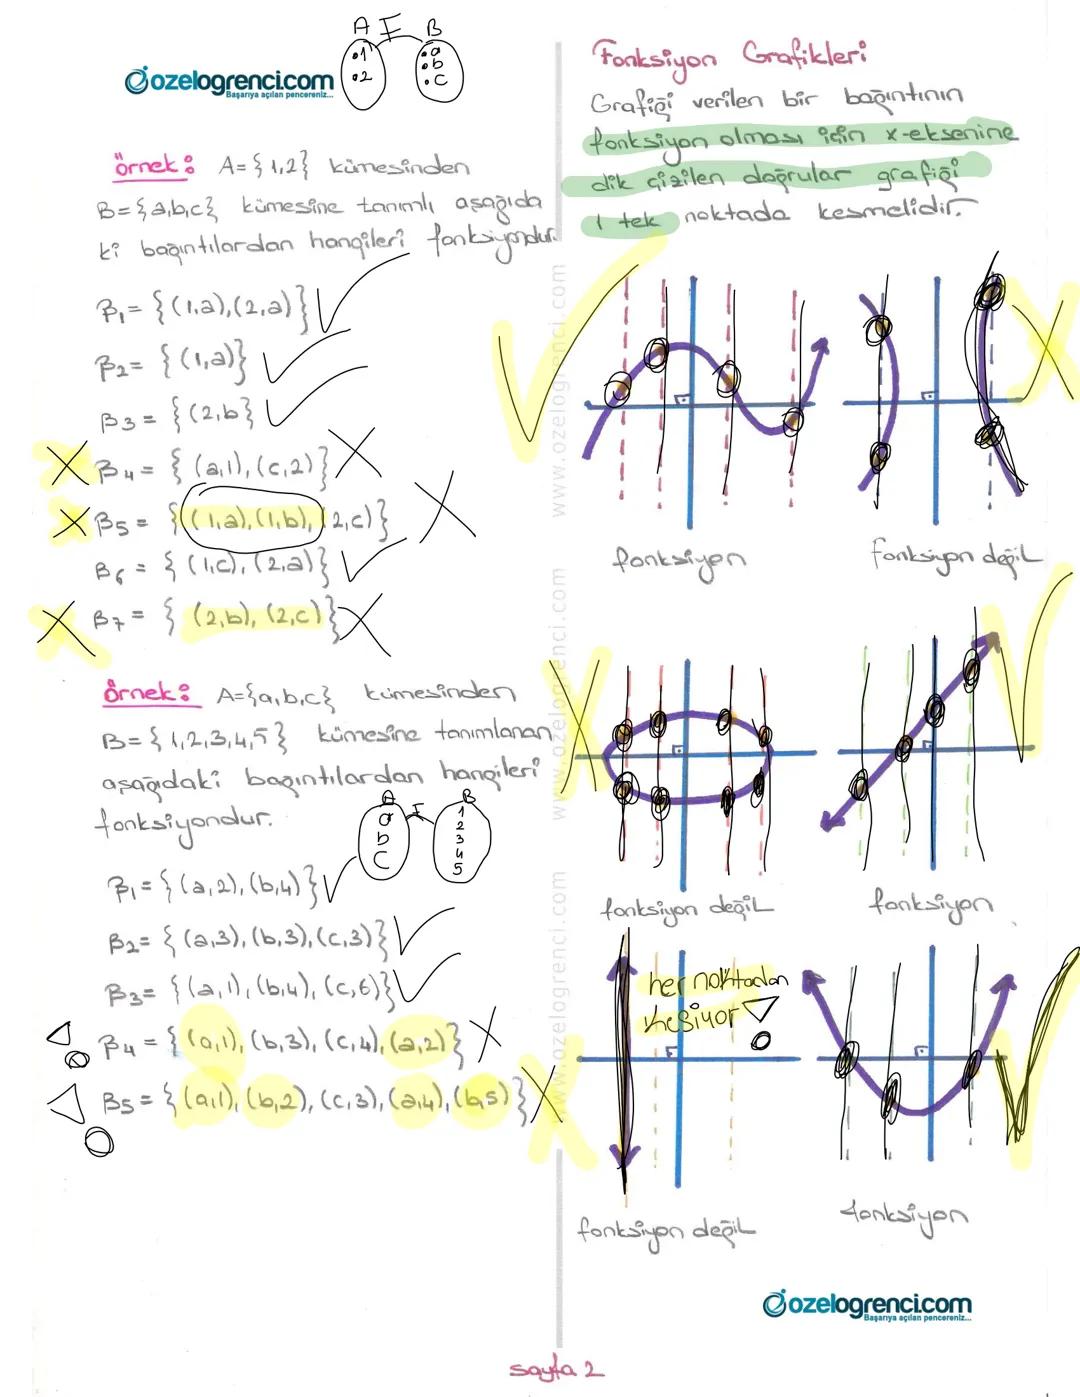 A F B
.1
.2
.a
.b
.c
ozelogrenci.com
Başarıya açılan pencereniz...
örnek: A={1,2} kümesinden
B={a,b,c} kümesine tanımlı aşağıda
ki bağıntılardan hangileri fonksiyondur.
β₁= {(1,a),(2,a)}
β₂= {(1,a)}
β₃ = {(2,b}
β₄ = {(a,1),(c,2)}
β₅ = {(1,a),(1,b),(2,c)}
β₆ = {(1,c),(2,a)}
β₇ = {(2,b),(2,c)}
örnek: A={a,b,c} kümesinden
B={1,2,3,4,5} kümesine tanımlanan
aşağıdaki bağıntılardan hangileri
fonksiyondur.
A F B
a
b
c
1
2
3
4
5
β₁={(a,2),(b,4)}
β₂= {(a,3),(b,3),(c,3)}
β₃= {(a,1),(b,4),(c,6)}
β₄ = {(a,1),(b,3),(c,4),(a,2)}
β₅ = {(a,1),(b,2),(c,3),(a,4),(b,5)}
www.ozelogrenci.com www.ozelogrenci.com www.ozelogrenci.com
Fonksiyon Grafikleri
Grafiği verilen bir bağıntının
fonksiyon olması için x-eksenine
dik çizilen doğrular grafiği
1 tek noktada kesmelidir.
fonksiyon
fonksiyon değil
fonksiyon değil
fonksiyon
her noktadan
kesiyor
fonksiyon değil
fonksiyon
ozelogrenci.com
Başarıya açılan pencereniz...
sayfa 2